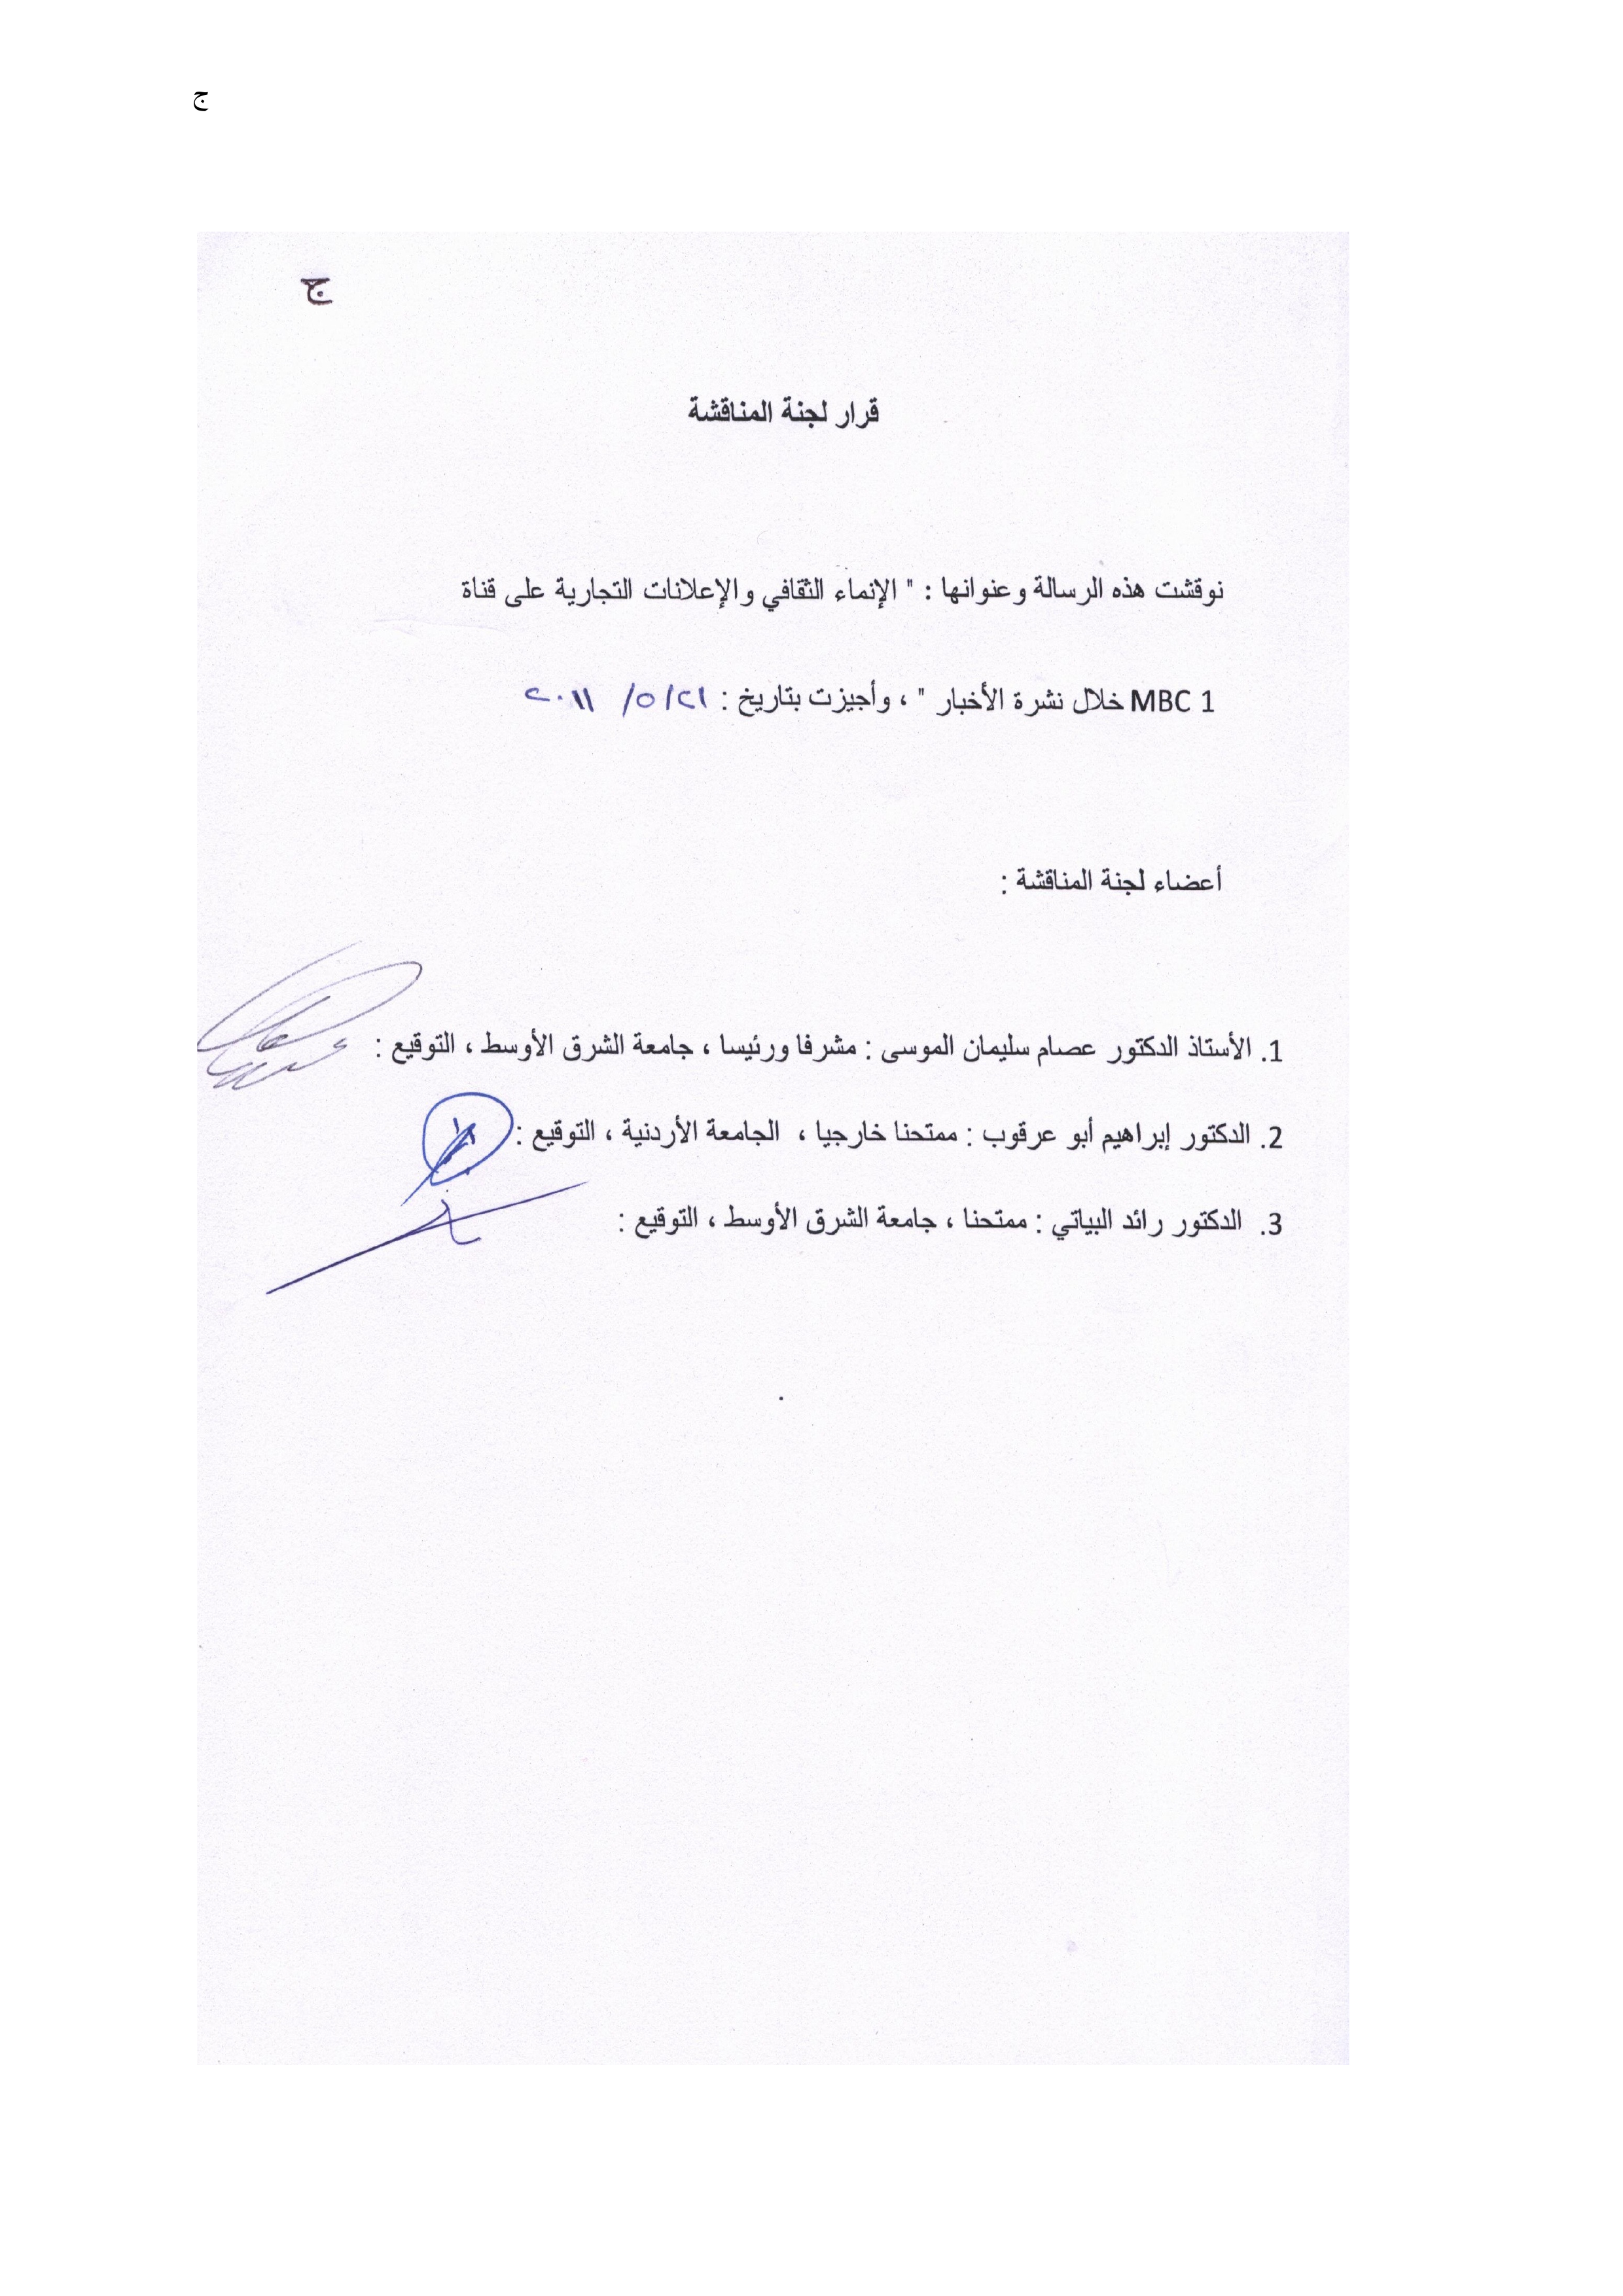 ج
ج
قرار لجنة المناقشة
نوقشت هذه الرسالة وعنوانها : " الإنماء الثقافي والإعلانات التجارية على قناة
MBC 1 خلال نشرة الأخبار " ، وأجيزت بتاريخ : ٢١/ ٥/ ٢٠١١
أعضاء لجنة المناقشة :
1. الأستاذ الدكتور عصام سليمان الموسى : مشرفا ورئيسا ، جامعة الشرق الأوسط ، التوقيع :
2. الدكتور إبراهيم أبو عرقوب : ممتحنا خارجيا ، الجامعة الأردنية ، التوقيع :
3. الدكتور رائد البياتي : ممتحنا ، جامعة الشرق الأوسط ، التوقيع :